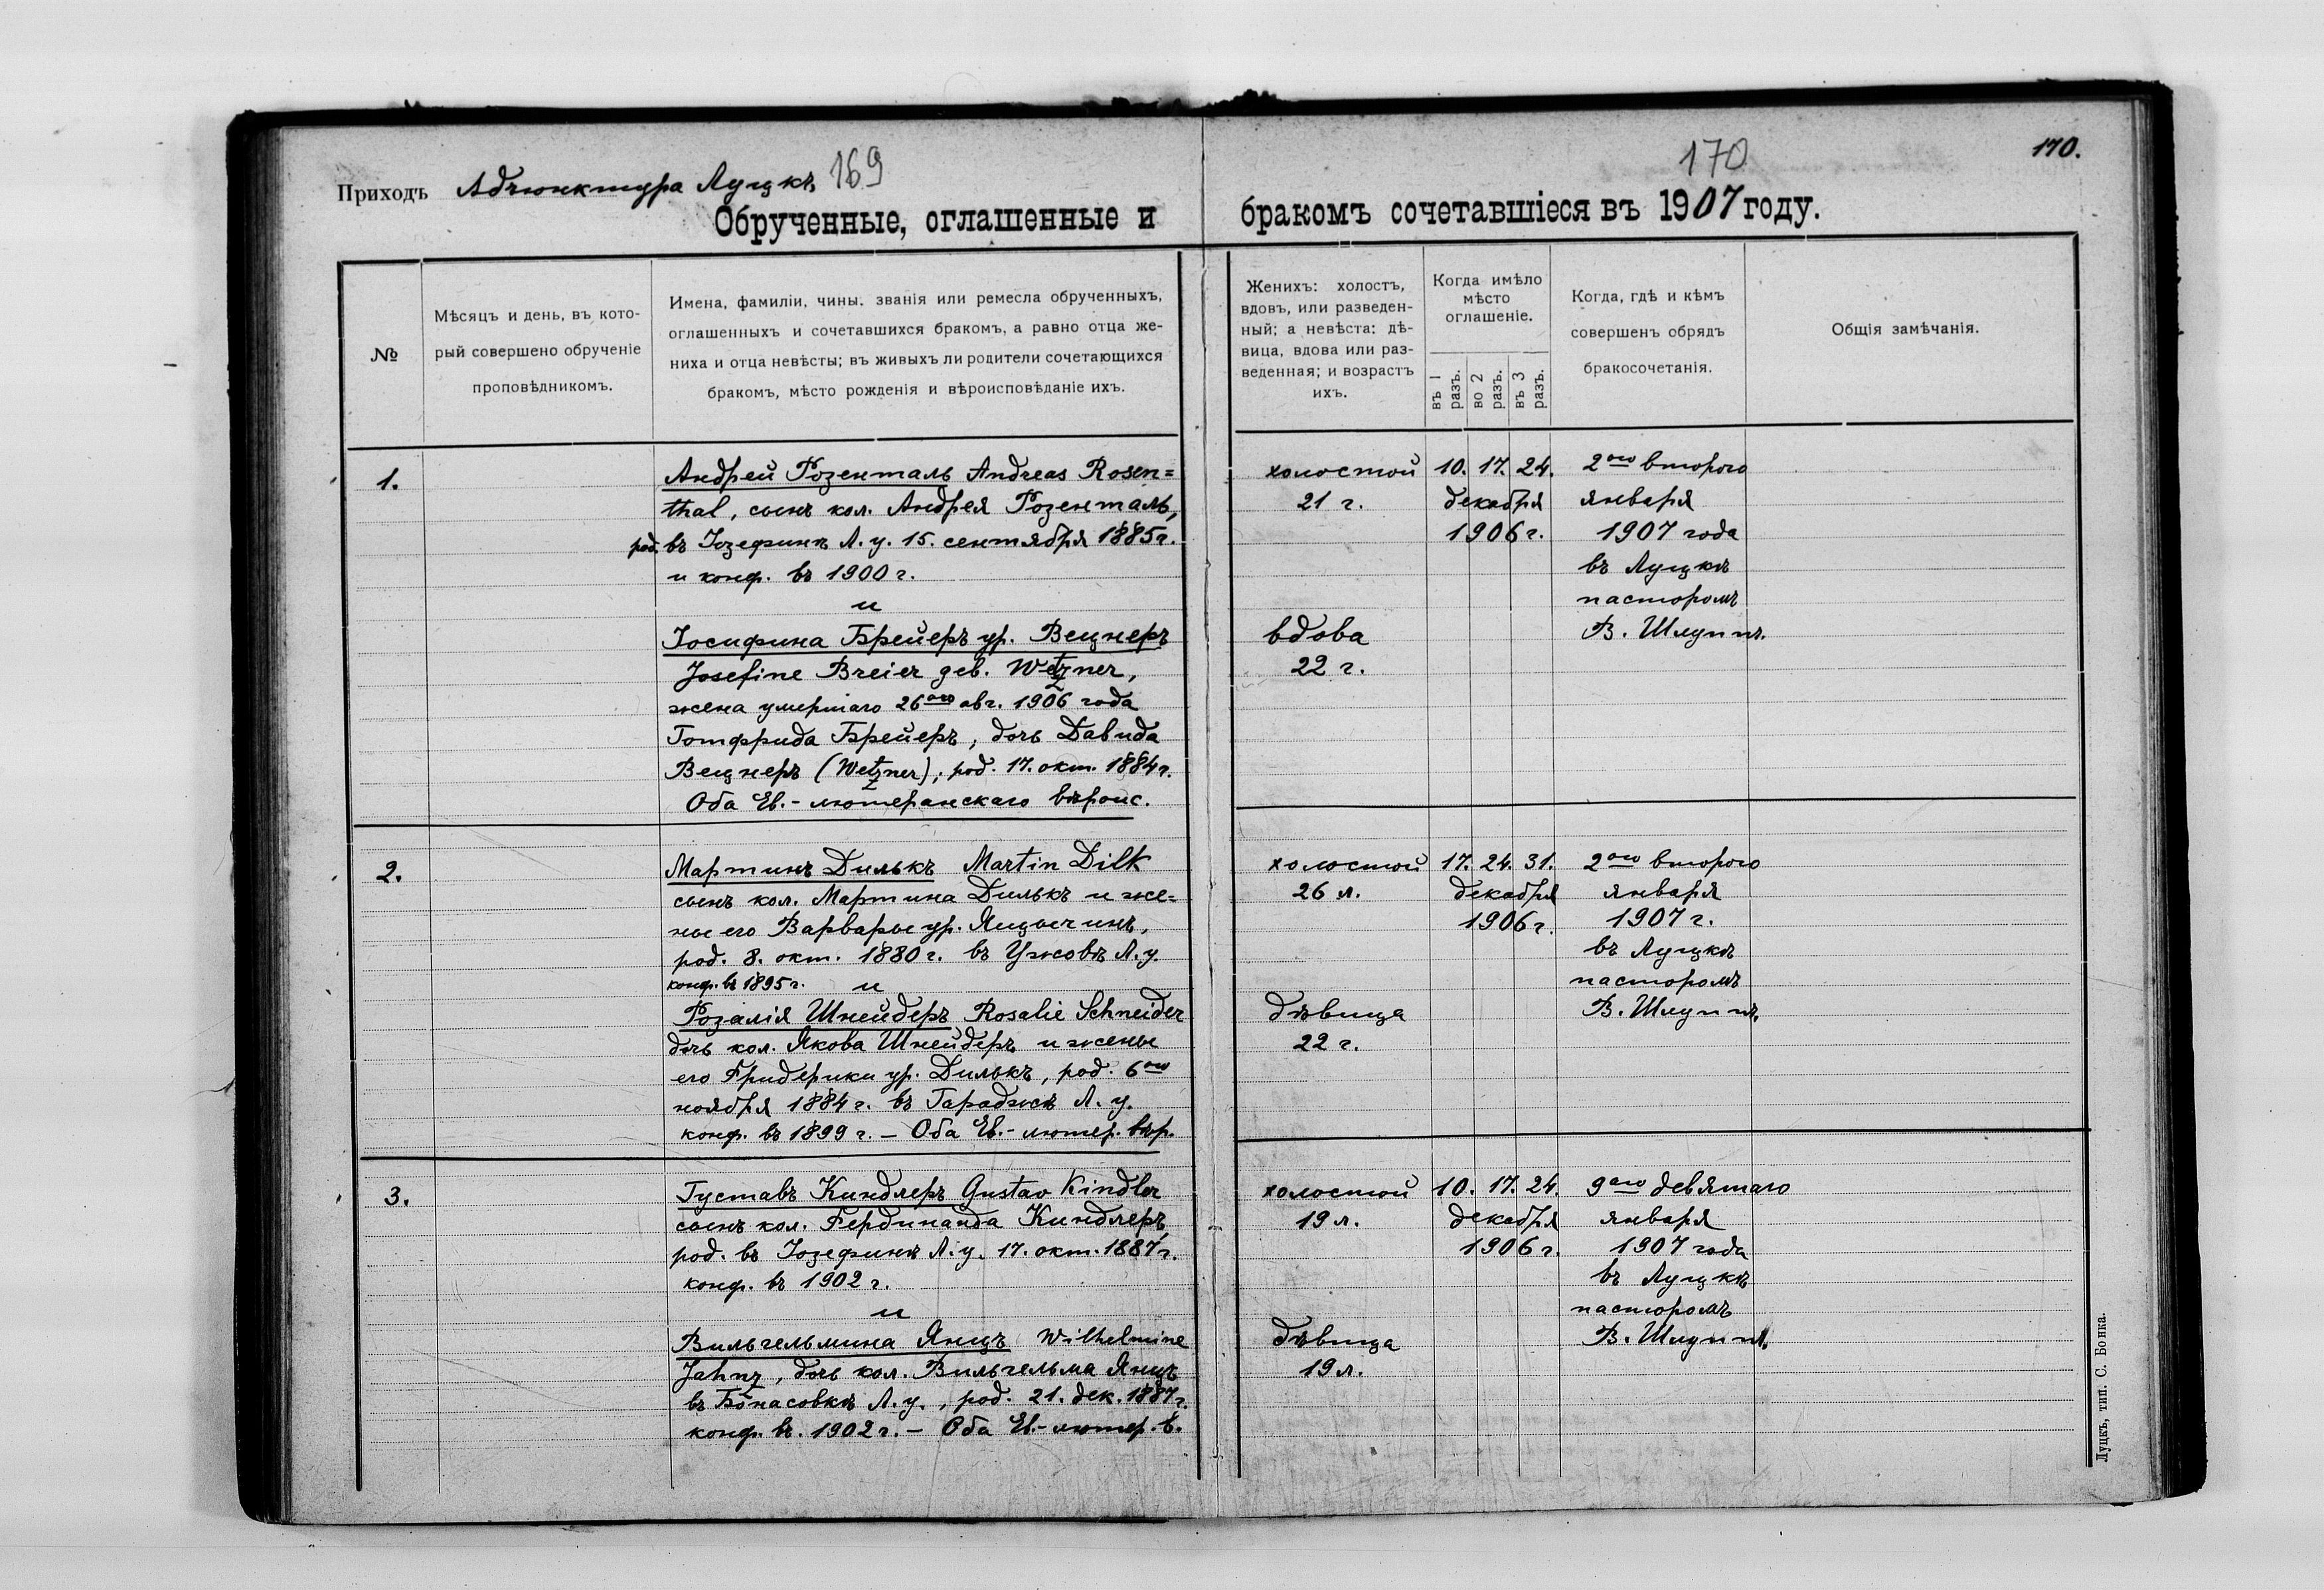 Приходъ Адъюнктура Луцкъ 169
Обрученные, оглашенные и
№
Мѣсяцъ и день, въ кото-
рый совершено обрученіе
проповѣдникомъ.
Имена, фамиліи, чины, званія или ремесла обрученныхъ,
оглашенныхъ и сочетавшихся бракомъ, а равно отца же-
ниха и отца невѣсты; въ живыхъ ли родители сочетающихся
бракомъ, мѣсто рожденія и вѣроисповѣданіе ихъ.
1.
Андрей Розенталь Andreas Rosen=
thal, сынъ кол. Андрея Розенталь,
род. въ Іозефинѣ Л. у. 15. сентября 1885г.
и конф. въ 1900 г.
и
Іосифина Брейеръ ур. Вецнеръ
Josefine Breier geb. Wetzner,
жена умершаго 26ого авг. 1906 года
Готфрида Брейеръ, дочь Давида
Вецнеръ (Wetzner), род. 17. окт. 1884г.
Оба Ев.-лютеранскаго вѣроис.
2.
Мартинъ Дилькъ Martin Dilk
сынъ кол. Мартина Дилькъ и же=
ны его Варвары ур. Яцычинъ,
род. 8. окт. 1880 г. въ Ужовѣ Л. у.
конф. въ 1895 г. и
Розалія Шнейдеръ Rosalie Schneider
дочь кол. Якова Шнейдеръ и жены
его Фридерики ур. Дилькъ, род. 6ого
ноября 1884 г. въ Гараджѣ Л. у.
конф. въ 1899 г. — Оба Ев.-лютер. вѣр.
3.
Густавъ Киндлеръ Gustav Kindler
сынъ кол. Фердинанда Киндлеръ,
род. въ Іозефинѣ Л. у. 17. окт. 1887г.
конф. въ 1902 г.
и
Вильгельмина Янцъ Wilhelmine
Jahnz, дочь кол. Вильгельма Янцъ
въ Бонасовкѣ Л. у., род. 21. дек. 1887г.
конф. въ. 1902 г. — Оба Ев.-лютер. в.
170
170.
бракомъ сочетавшіеся въ 1907 году.
Женихъ: холостъ,
вдовъ, или разведен-
ный; а невѣста: дѣ-
вица, вдова или раз-
веденная; и возрастъ
ихъ.
Когда имѣло
мѣсто
оглашеніе.
въ 1 разъ.
во 2 разъ.
въ 3 разъ.
Когда, гдѣ и кѣмъ
совершенъ обрядъ
бракосочетанія.
Общія замѣчанія.
холостой 10. 17. 24. 2ого второго
21 г. декабря января
1906 г. 1907 года
въ Луцкѣ
пасторомъ
вдова В. Шлуппъ.
22 г.
холостой 17. 24. 31. 2ого второго
26 л. декабря января
1906 г. 1907 г.
въ Луцкѣ
пасторомъ
дѣвица В. Шлуппъ.
22 г.
холостой 10. 17. 24. 9аго девятаго
19 л. декабря января
1906 г. 1907 года
въ Луцкѣ
пасторомъ
дѣвица В. Шлуппъ.
19 л.
Луцкъ, тип. С. Бонка.